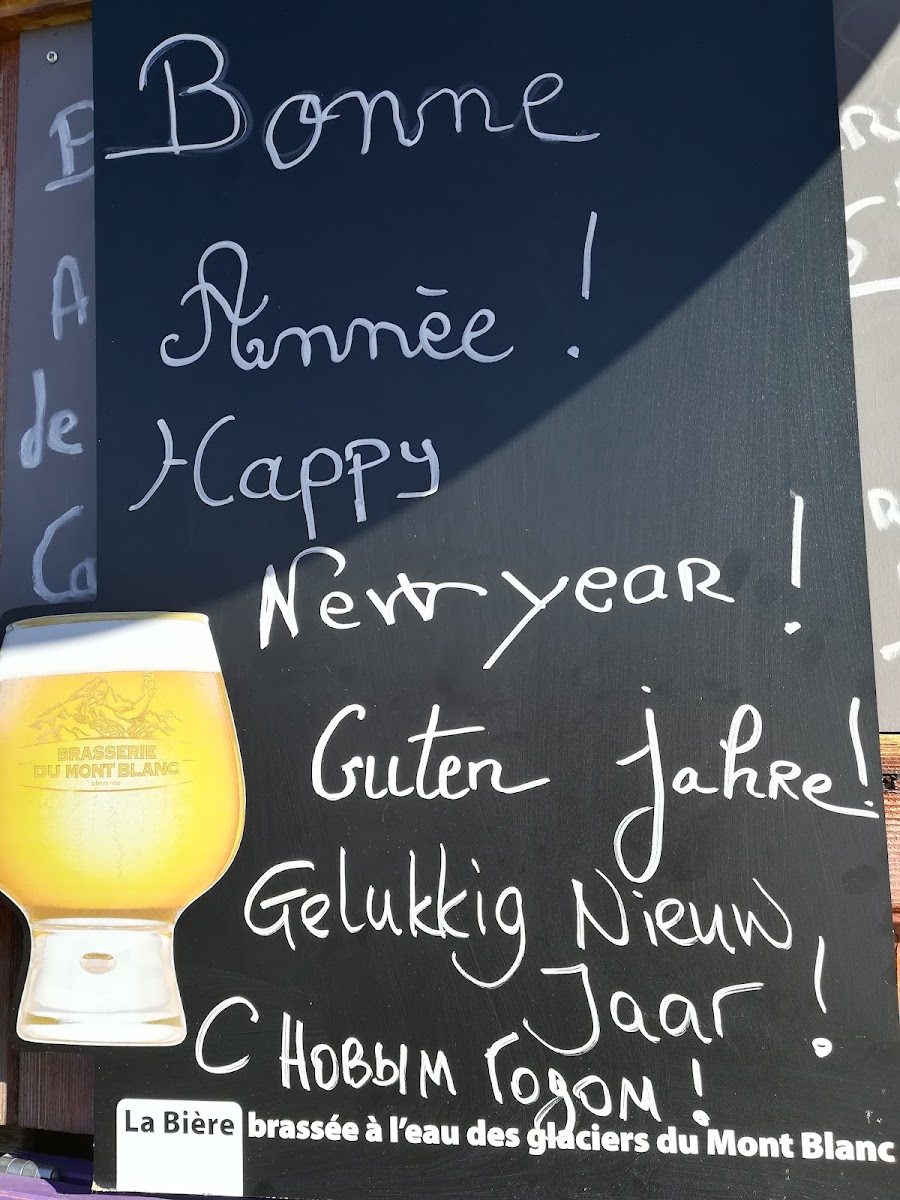 Bonne
Année !
Happy
New year !
Guten Jahre !
Gelukkig Nieuw
Jaar !
С Новым Годом !
BRASSERIE
DU MONT BLANC
La Bière brassée à l'eau des glaciers du Mont Blanc
de